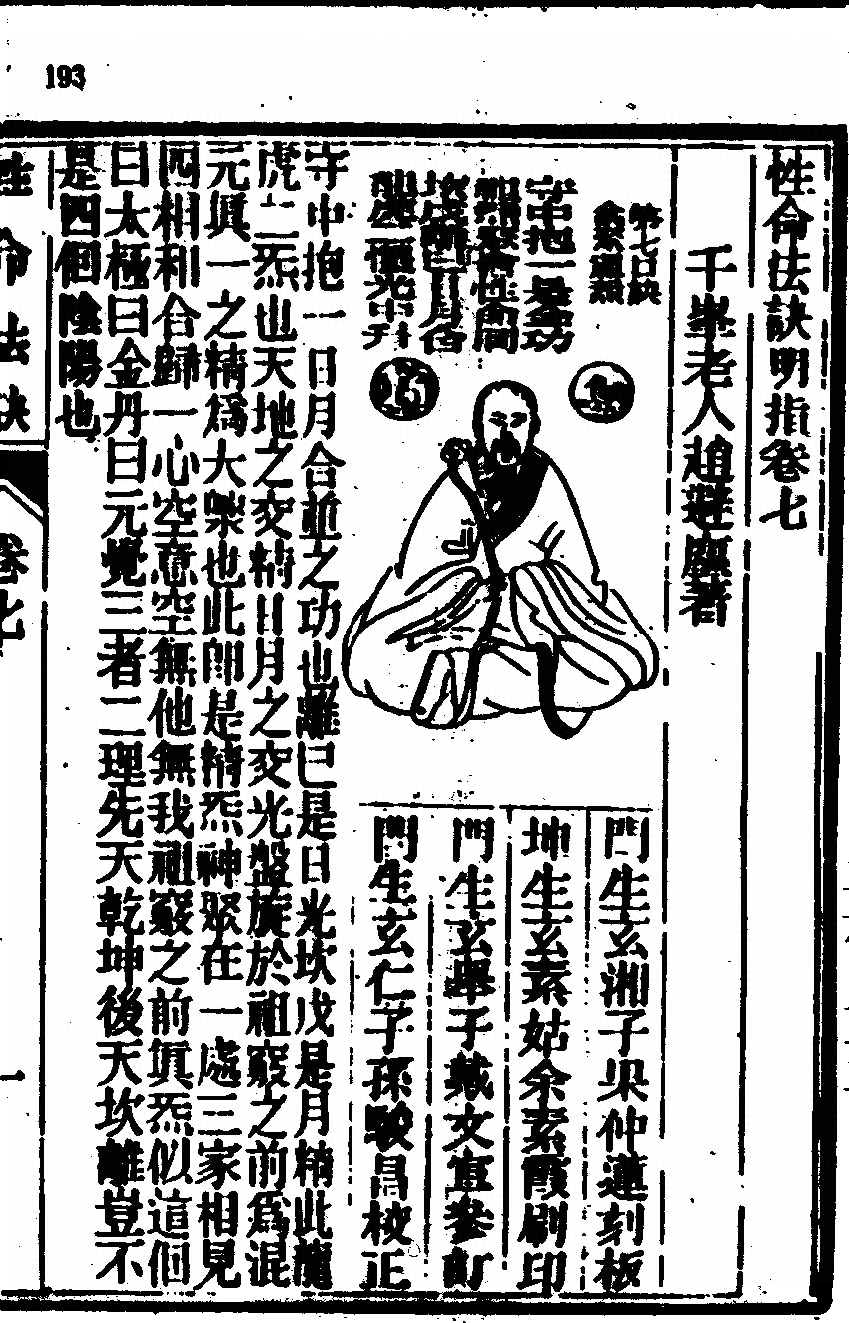 193
性命法訣明指卷七
千峯老人趙避塵著
第七口訣
守中抱一是金功
日月合
門生玄湘子果仲蓮刻板
坤生玄素姑余素霞刷印
門生玄舉子戴文宣參訂
門生玄仁子孫駿昌校正
守中抱一日月合並之功也離巳是日光坎戊是月精此龍
虎二炁也天地之交精日月之交光盤旋於祖竅之前爲混
元眞一之精爲大藥也此卽是精炁神聚在一處三家相見
四相和合歸一心空意空無他無我祖竅之前眞炁似這個
曰太極曰金丹曰元覺三者二理先天乾坤後天坎離豈不
是四個陰陽也
性命法訣
卷七
一